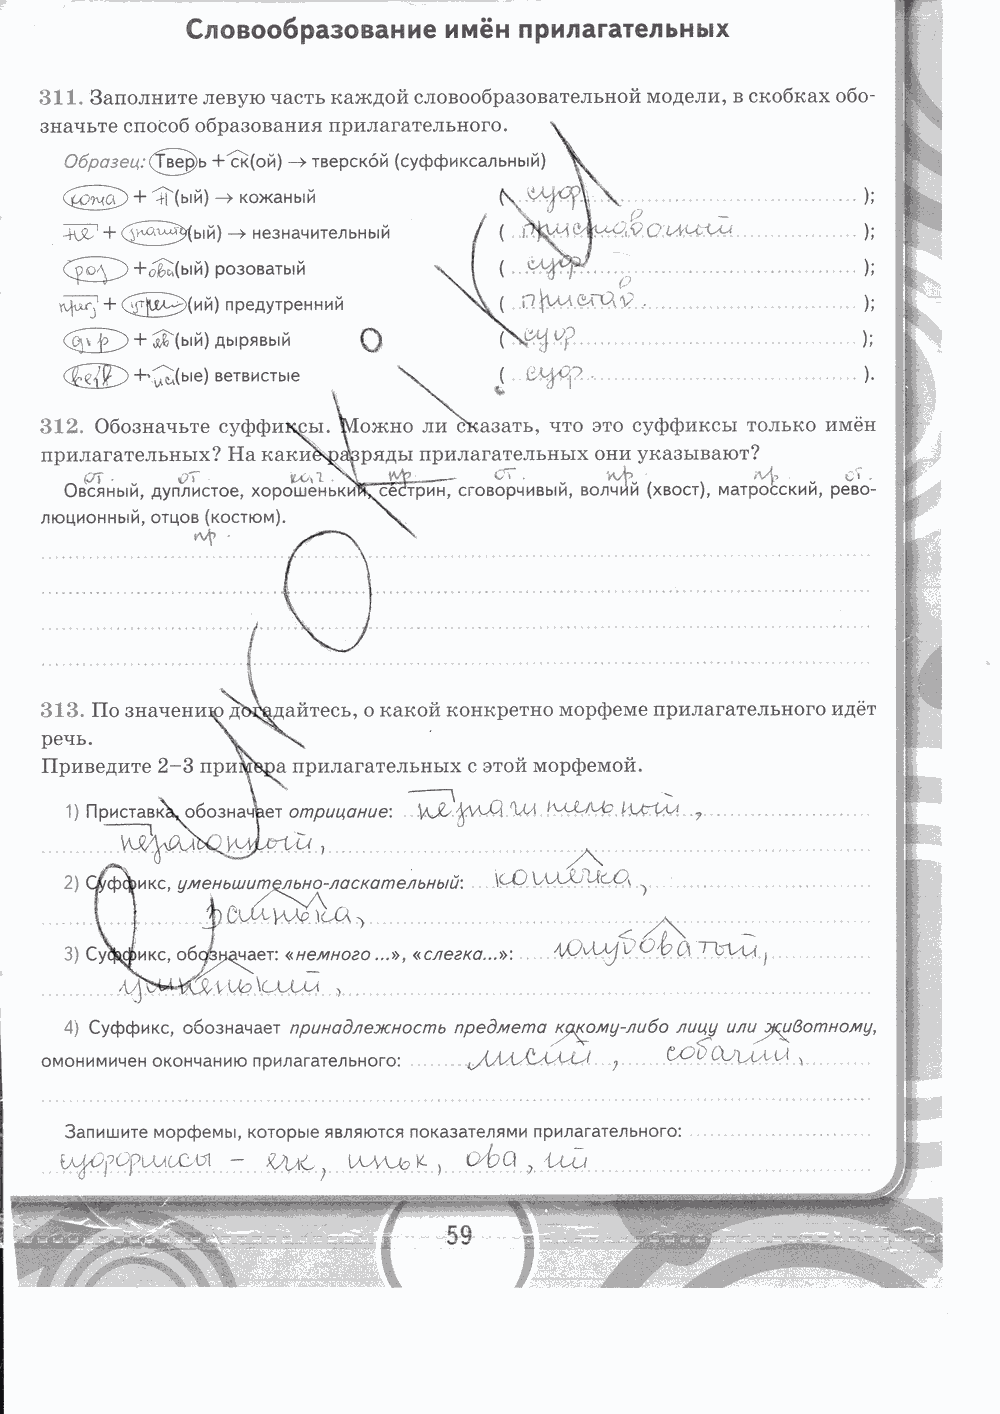 Словообразование имён прилагательных
311. Заполните левую часть каждой словообразовательной модели, в скобках обо-
значьте способ образования прилагательного.
Образец: Тверь + ск(ой) → тверско́й (суффиксальный)
кожа + н (ый) → кожаный ( суф );
не + (ый) → незначительный ( приставочный );
роз + ова (ый) розоватый ( суф );
+ (ий) предутренний ( пристав. );
дыр + яв (ый) дырявый ( суф );
ветв + ис (ые) ветвистые ( суф. ).
312. Обозначьте суффиксы. Можно ли сказать, что это суффиксы только имён
прилагательных? На какие разряды прилагательных они указывают?
от. от. кач. пр. от. пр. пр. от.
Овсяный, дуплистое, хорошенький, сестрин, сговорчивый, волчий (хвост), матросский, рево-
люционный, отцов (костюм).
пр.
313. По значению догадайтесь, о какой конкретно морфеме прилагательного идёт
речь.
Приведите 2–3 примера прилагательных с этой морфемой.
1) Приставка, обозначает отрицание: незначительный,
незаконный,
2) Суффикс, уменьшительно-ласкательный: кошечка,
3) Суффикс, обозначает: «немного ...», «слегка...»: голубоватый,
умненький,
4) Суффикс, обозначает принадлежность предмета какому-либо лицу или животному,
омонимичен окончанию прилагательного: лисий, собачий.
Запишите морфемы, которые являются показателями прилагательного:
суффиксы - ечк, иньк, ова, ий
59